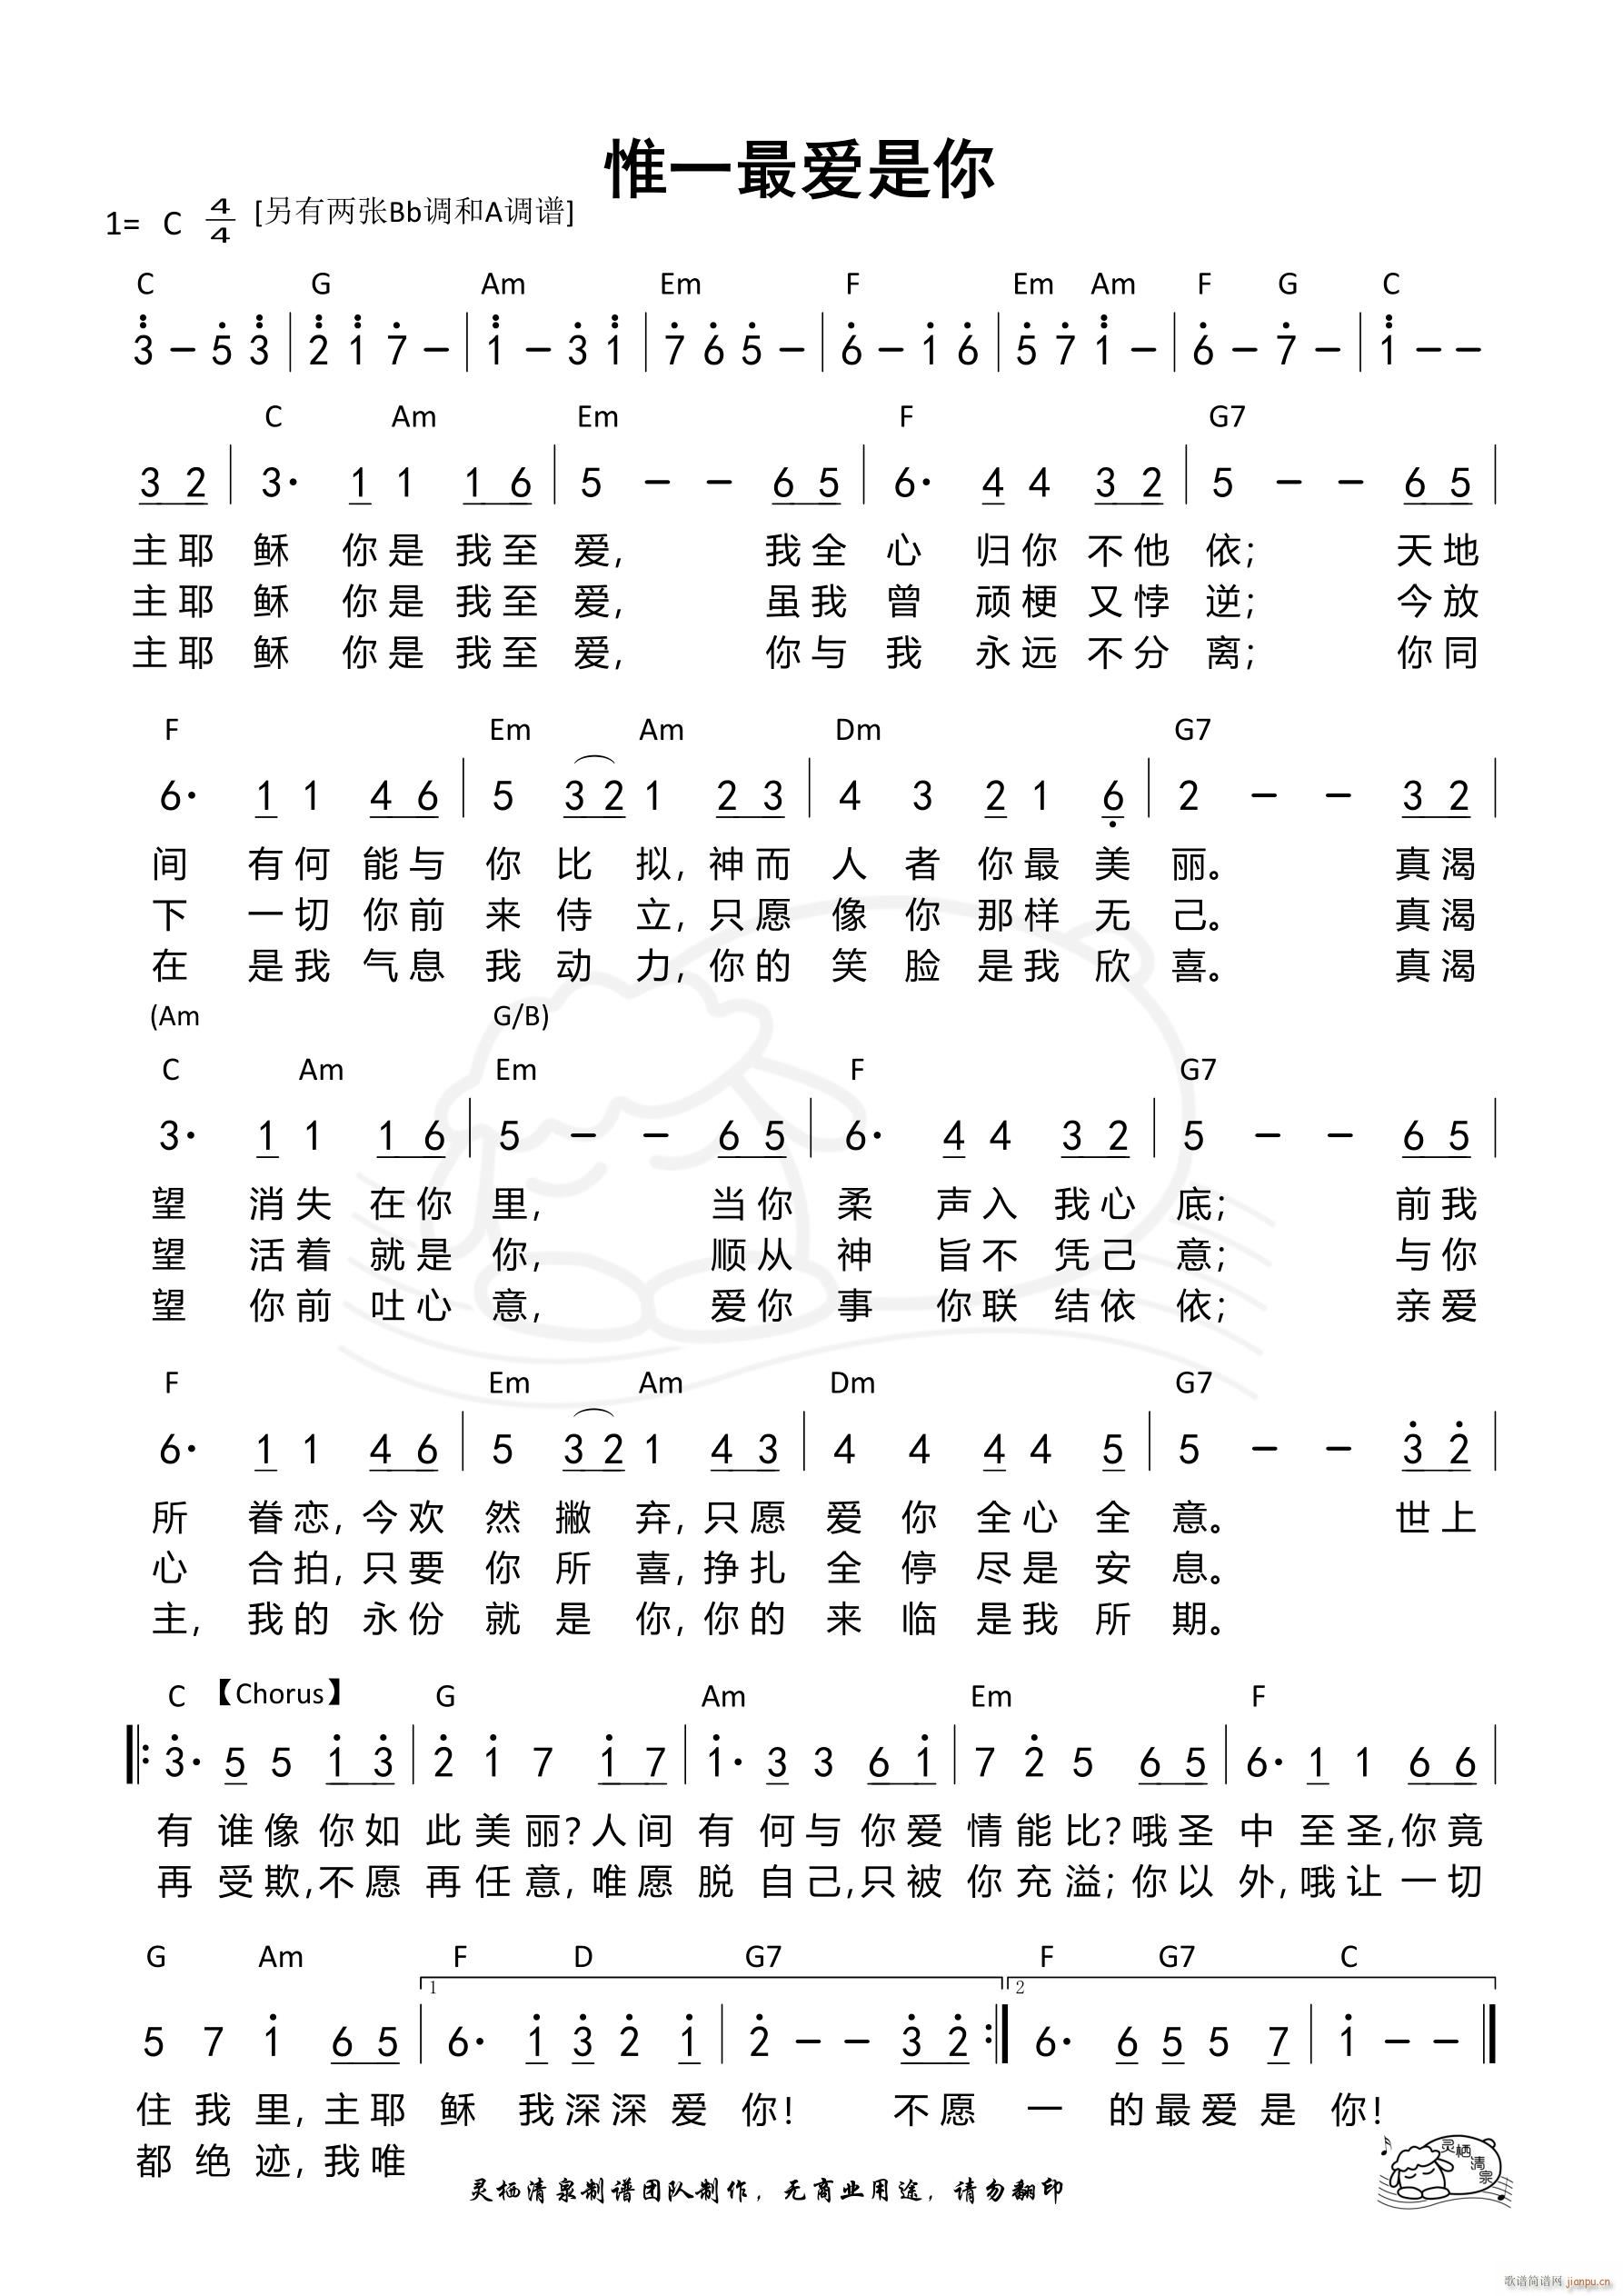 惟一最爱是你
1= C 4/4 [另有两张Bb调和A调谱]
C G Am Em F Em Am F G C
3 – 5 3 | 2 1 7 – | 1 – 3 1 | 7 6 5 – | 6 – 1 6 | 5 7 1 – | 6 – 7 – | 1 – –
C Am Em F G7
3 2 | 3· 1 1 1 6 | 5 – – 6 5 | 6· 4 4 3 2 | 5 – – 6 5 |
主耶 稣 你是 我至 爱, 我全 心 归你 不他 依; 天地
主耶 稣 你是 我至 爱, 虽我 曾 顽梗 又悖 逆; 今放
主耶 稣 你是 我至 爱, 你与 我 永远 不分 离; 你同
F Em Am Dm G7
6· 1 1 4 6 | 5 3 2 1 2 3 | 4 3 2 1 6 | 2 – – 3 2 |
间 有何 能与 你 比 拟, 神而 人 者 你最 美 丽。 真渴
下 一切 你前 来 侍 立, 只愿 像 你 那样 无 己。 真渴
在 是我 气息 我 动 力, 你的 笑 脸 是我 欣 喜。 真渴
(Am G/B)
C Am Em F G7
3· 1 1 1 6 | 5 – – 6 5 | 6· 4 4 3 2 | 5 – – 6 5 |
望 消失 在你 里, 当你 柔 声入 我心 底; 前我
望 活着 就是 你, 顺从 神 旨不 凭己 意; 与你
望 你前 吐心 意, 爱你 事 你联 结依 依; 亲爱
F Em Am Dm G7
6· 1 1 4 6 | 5 3 2 1 4 3 | 4 4 4 4 5 | 5 – – 3 2 |
所 眷恋, 今欢 然 撇 弃, 只愿 爱 你 全心 全 意。 世上
心 合拍, 只要 你 所 喜, 挣扎 全 停 尽是 安 息。
主, 我的 永份 就 是 你, 你的 来 临 是我 所 期。
C 【Chorus】 G Am Em F
3· 5 5 1 3 | 2 1 7 1 7 | 1· 3 3 6 1 | 7 2 5 6 5 | 6· 1 1 6 6 |
有 谁像 你如 此美丽? 人间 有 何与 你爱 情能比? 哦圣 中 至圣, 你竟
再 受欺, 不愿 再任意, 唯愿 脱 自己, 只被 你充溢; 你以 外, 哦让 一切
G Am F D G7 F G7 C
1 2
5 7 1 6 5 | 6· 1 3 2 1 | 2 – – 3 2 :| 6· 6 5 5 7 | 1 – –
住我里, 主耶 稣 我深深爱 你! 不愿 一 的最爱是 你!
都绝迹, 我唯
灵栖清泉制谱团队制作，无商业用途，请勿翻印
灵栖清泉
歌谱简谱网 jianpu.cn